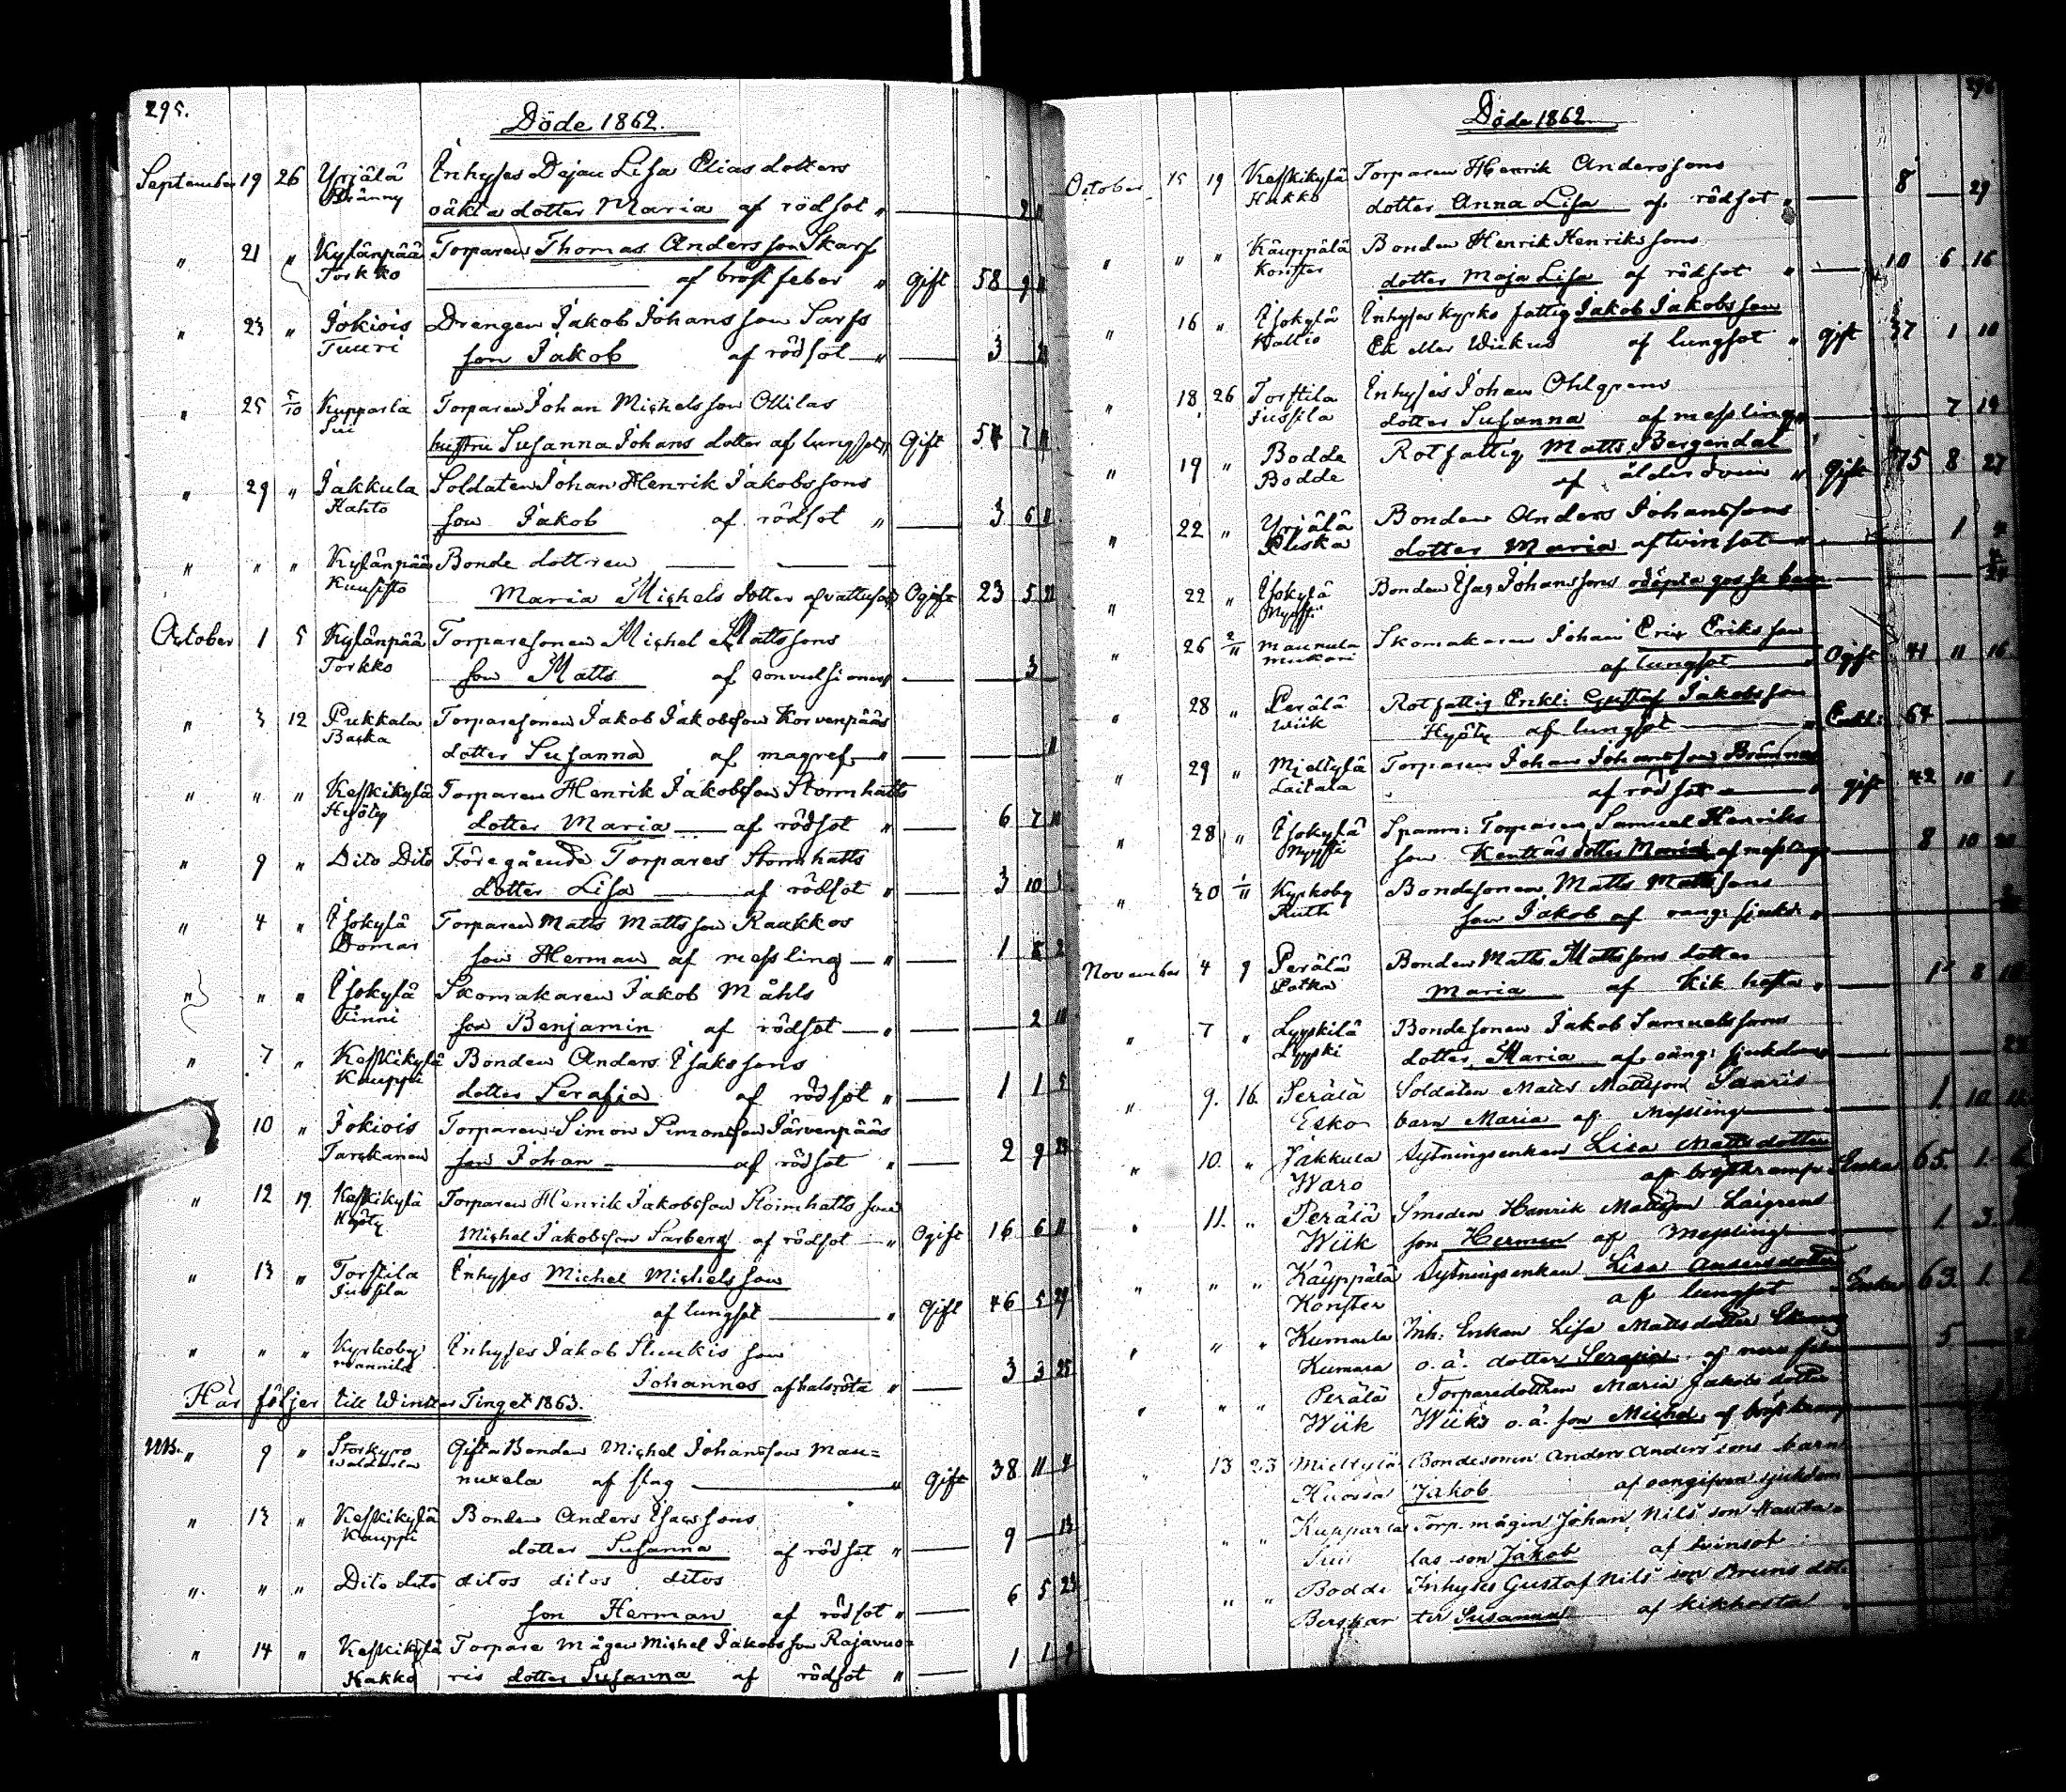 295.
Döde 1862.
September 19 26 Yrjälä Inhyses Dejan Lisa Eliasdotters
Bränny oäkta dotter Maria af rödsot " — 2
" 21 " Kylänpää Torparen Thomas Andersson Skarf
Torkko — af bröstfeber " Gift 58 9
" 23 " Jokiois Drengen Jakob Johansson Sarfs
Tuuri son Jakob af rödsot — " — 3
" 25 5/10 Kupparla Torparen Johan Michelsson Ollilas
Sui hustru Susanna Johansdotter af lungsot " Gift 54 7
" 29 " Jakkula Soldaten Johan Henrik Jakobssons
Kahto son Jakob af rödsot " — 3 6
" " " Kylänpää Bonde dottren — — —
Kuusisto Maria Michelsdotter af vattusot Ogift 23 5
October 1 5 Kylänpää Torparesonen Michel Mattssons
Torkko son Matts af convulsioner — 3
" 3 12 Pukkala Torparesonen Jakob Jakobsson Korvenpääs
Backa dotter Susanna af magref — " —
" " " Keskikylä Torparen Henrik Jakobsson Stormhatts
Hyöty dotter Maria — af rödsot " — 6 7
" 9 " Dito Dito Föregående Torpares Stormhatts
dotter Lisa — af rödsot " — 3 10
" 4 " Isokylä Torparen Matts Mattsson Raakkos
Domar son Herman af messling — " — 1
" " " Isokylä Skomakaren Jakob Måhls
Finni son Benjamin af rödsot — " — 2
" 7 " Keskikylä Bonden Anders Isakssons
Kauppi dotter Serafia af rödsot " — 1 1 5
10 " Jokiois Torparen Simon Simonsson Järvenpääs
Tarckanen son Johan — af rödsot " — 2 9 23
" 12 19 Keskikylä Torparen Henrik Jakobsson Stormhatts son
Hyöty Michel Jakobsson Sarberg af rödsot — " Ogift 16 6
" 13 " Torstila Inhyses Michel Michelsson
Jussila af lungsot — " Gift 46 5 29
" " " Kyrkoby Inhyses Jakob Stuukis son
Wannila Johannes af halsröta " — 3 3 25
Här följer till Winter Tinget 1863.
NB. " 9 " Storkyro Gifta Bonden Michel Johansson Mau=
Waldarla nuxela af slag — " Gift 38 11
" 13 " Keskikylä Bonden Anders Isacssons
Kauppi dotter Susanna af rödsot " — 9 — 13
" " " Dito dito ditos ditos ditos
son Herman af rödsot " — 6 5 23
" 14 " Keskikylä Torpare mågen Michel Jakobsson Rajavuo=
Hakko ris dotter Susanna af rödsot " — 1 1
Döde 1862
October 15 19 Keskikylä Torparen Henrik Anderssons
Hakko dotter Anna Lisa af rödsot " — 8 — 29
" " " Käuppälä Bonden Henrik Henrikssons
Konster dotter Maja Lisa af rödsot " — 10 6 16
" 16 " Isokylä Inhyses kyrko fattig Jakob Jakobsson
Kallio Ek eller Wiikus af lungsot " Gift 37 1 10
" 18 26 Torstila Inhyses Johan Ohlgrens
Jussila dotter Susanna af messling " — 7 19
" 19 " Bodde Rotfattig Matts Bergendal
Bodde af ålderdom " Gift 75 8 27
" 22 " Yrjälä Bonden Anders Johanssons
Pliska dotter Maria af tvinsot — " — 1 4
" 22 " Isokylä Bonden Isac Johanssons odöpta gosse barn —
Nyysti
" 26 2/11 Maunula Skomakaren Johan Eric Eriksson
Mickari af lungsot — " Ogift 41 11 16
" 28 " Perälä Rotfattig Enkl: Gustaf Jakobsson
Wiik Hyöty af lungsot — " Enkl: 64 —
" 29 " Mieltylä Torparen Johan Johansson Brännas
Laitala af rödsot — " gift 42 10 1
" 28 " Isokylä Spanm: Torparen Samuel Henriks
Nyysti son Kenttäs dotter Maria af messling — 8 10
" 30 1/11 Kyrkoby Bondesonen Matts Mattssons
Ruth son Jakob af oang: sjukd: " —
November 4 9 Perälä Bonden Matts Mattssons dotter
Potka Maria af kik hosta " — 8
" 7 " Lyyskilä Bondesonen Jakob Samuelssons
Lyyski dotter Maria af oång: sjukdom —
" 9. 16. Perälä Soldaten Matts Mattsson Saaris
Esko barn Maria af Messling — 1. 10
" 10. " Jakkula Sytningsenkan Lisa Mattsdotter
Waro af bröstkramp Enka 65. 1.
" 11. " Perälä Smeden Henrik Mattsson Laigrens
Wiik son Herman af Messling — 1. 3.
" " " Käyppälä Sytningsenkan Lisa Andersdotter
Konster af lungsot Enka 63. 1.
" " " Kumarla Inh: Enkan Lisa Mattsdotter
Kumara o. ä. dotter Serafia af nerv feber 5.
" " " Perälä Torparedottren Maria Jakobsdotter
Wiik Wiiks o. ä. son Michel af bröstkramp
" 13 23 Mieltylä Bondesonen Anders Anderssons barn
Huosia Jakob af oangifven sjukdom
" " Kupparla Torp. mågen Johan Nilsson Hauta=
Sui las son Jakob af tvinsot
" " Bodde Inhyses Gustaf Nilsson Bruns dot=
Berskar ter Susanna af kikhosta